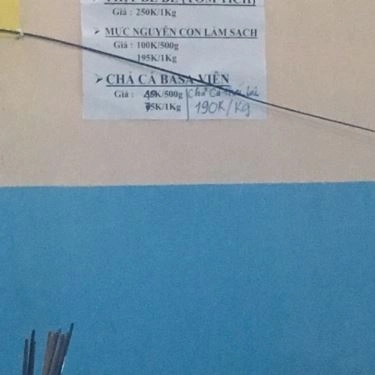 THỊT BỀ BỀ (TÔM TÍCH)
Giá : 250K/1Kg
➤ MỰC NGUYÊN CON LÀM SẠCH
Giá : 100K/500g
195K/1Kg
➤ CHẢ CÁ BASA VIÊN
Giá : K/500g
5K/1Kg
Chả Cá
190K/Kg